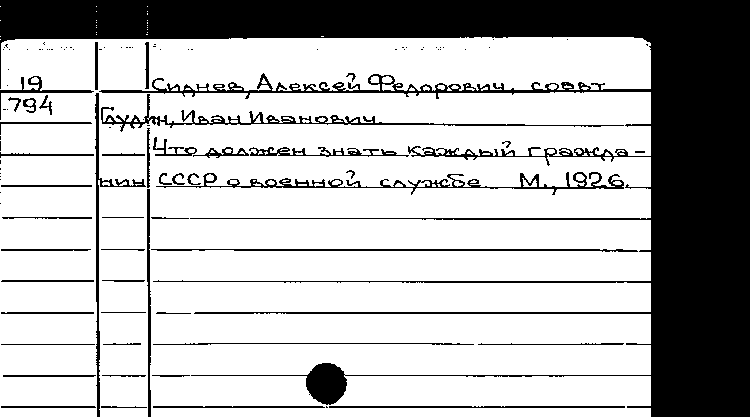 19 Сиднев, Алексей Федорович, соавт
794 Грудин, Иван Иванович.
Что должен знать каждый гражда-
нин СССР о военной службе М., 1926.